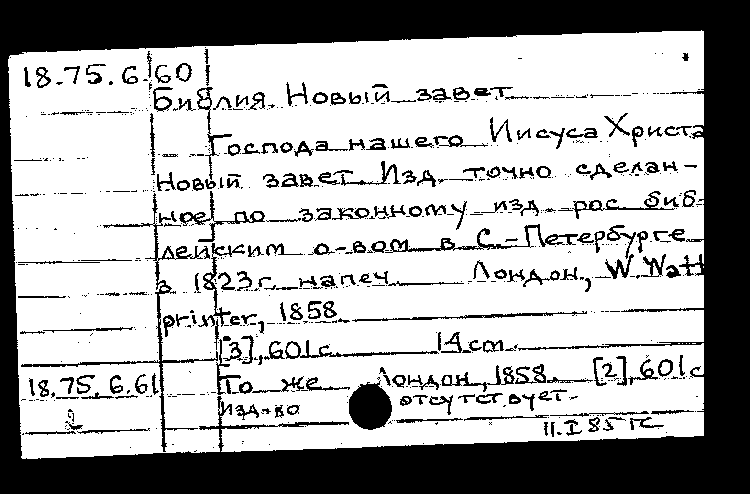 18.75.6.60
Библия. Новый завет
Господа нашего Иисуса Христа
Новый завет. Изд. точно сделан-
ное по законному изд. рос. биб-
лейским о-вом в С.-Петербурге
в 1823 г. напеч. Лондон, W. Watt
printer, 1858.
[3], 601 с. 14 cm.
18.75.6.61 То же Лондон, 1858. [2], 601 с
2 изд-во отсутствует.
11.I 85